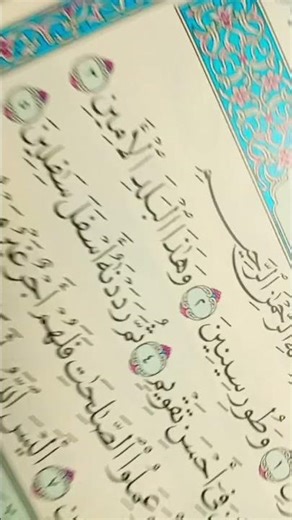 ـه الرَّحْمَٰنِ الرَّحِيـمِ
١ وَطُورِ سِينِينَ ٢ وَهَٰذَا ٱلْبَلَدِ ٱلْأَمِينِ ٣
فِىٓ أَحْسَنِ تَقْوِيمٍ ٤ ثُمَّ رَدَدْنَٰهُ أَسْفَلَ سَٰفِلِينَ ٥
عَمِلُوا۟ ٱلصَّٰلِحَٰتِ فَلَهُمْ أَجْرٌ غَيْرُ
٧ أَلَيْسَ ٱللَّهُ